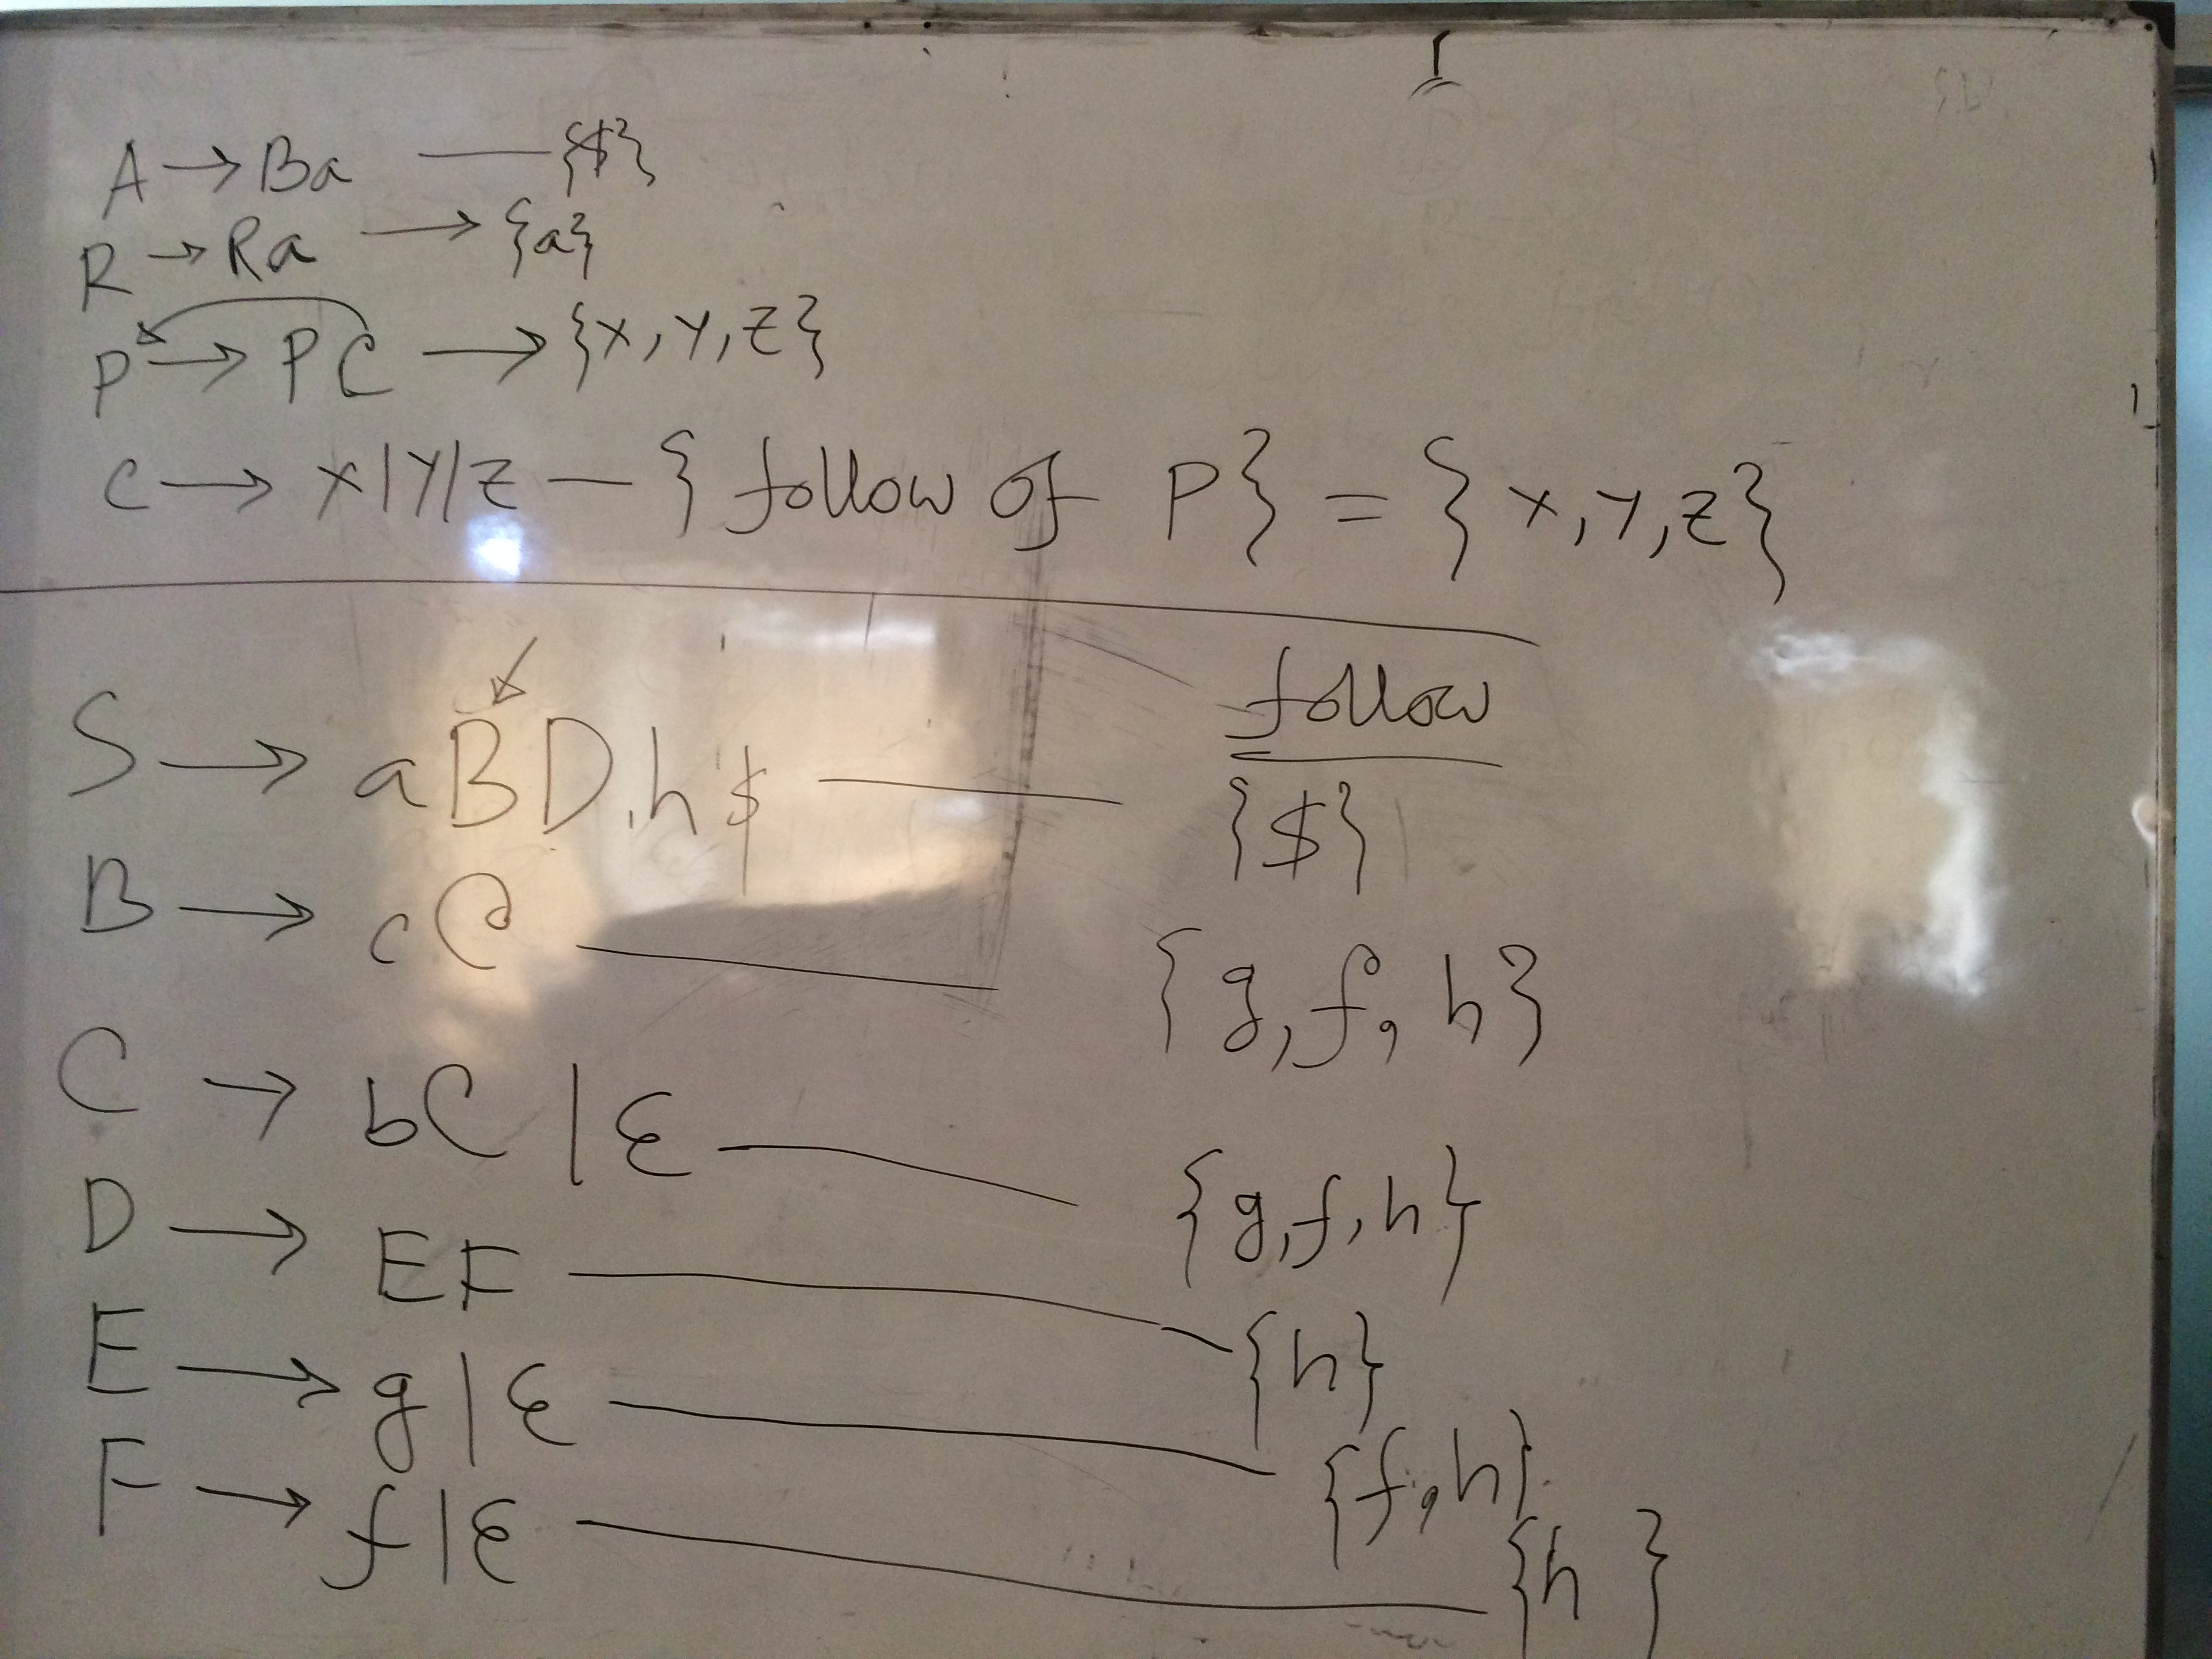 A → Ba — {$}
R → Ra → {a}
P → PC → {x, y, z}
C → x|y|z — {follow of P} = {x, y, z}
follow
S → aBDh$ — {$}
B → cC — {g, f, h}
C → bC | ε — {g, f, h}
D → EF — {h}
E → g | ε — {f, h}
F → f | ε — {h }